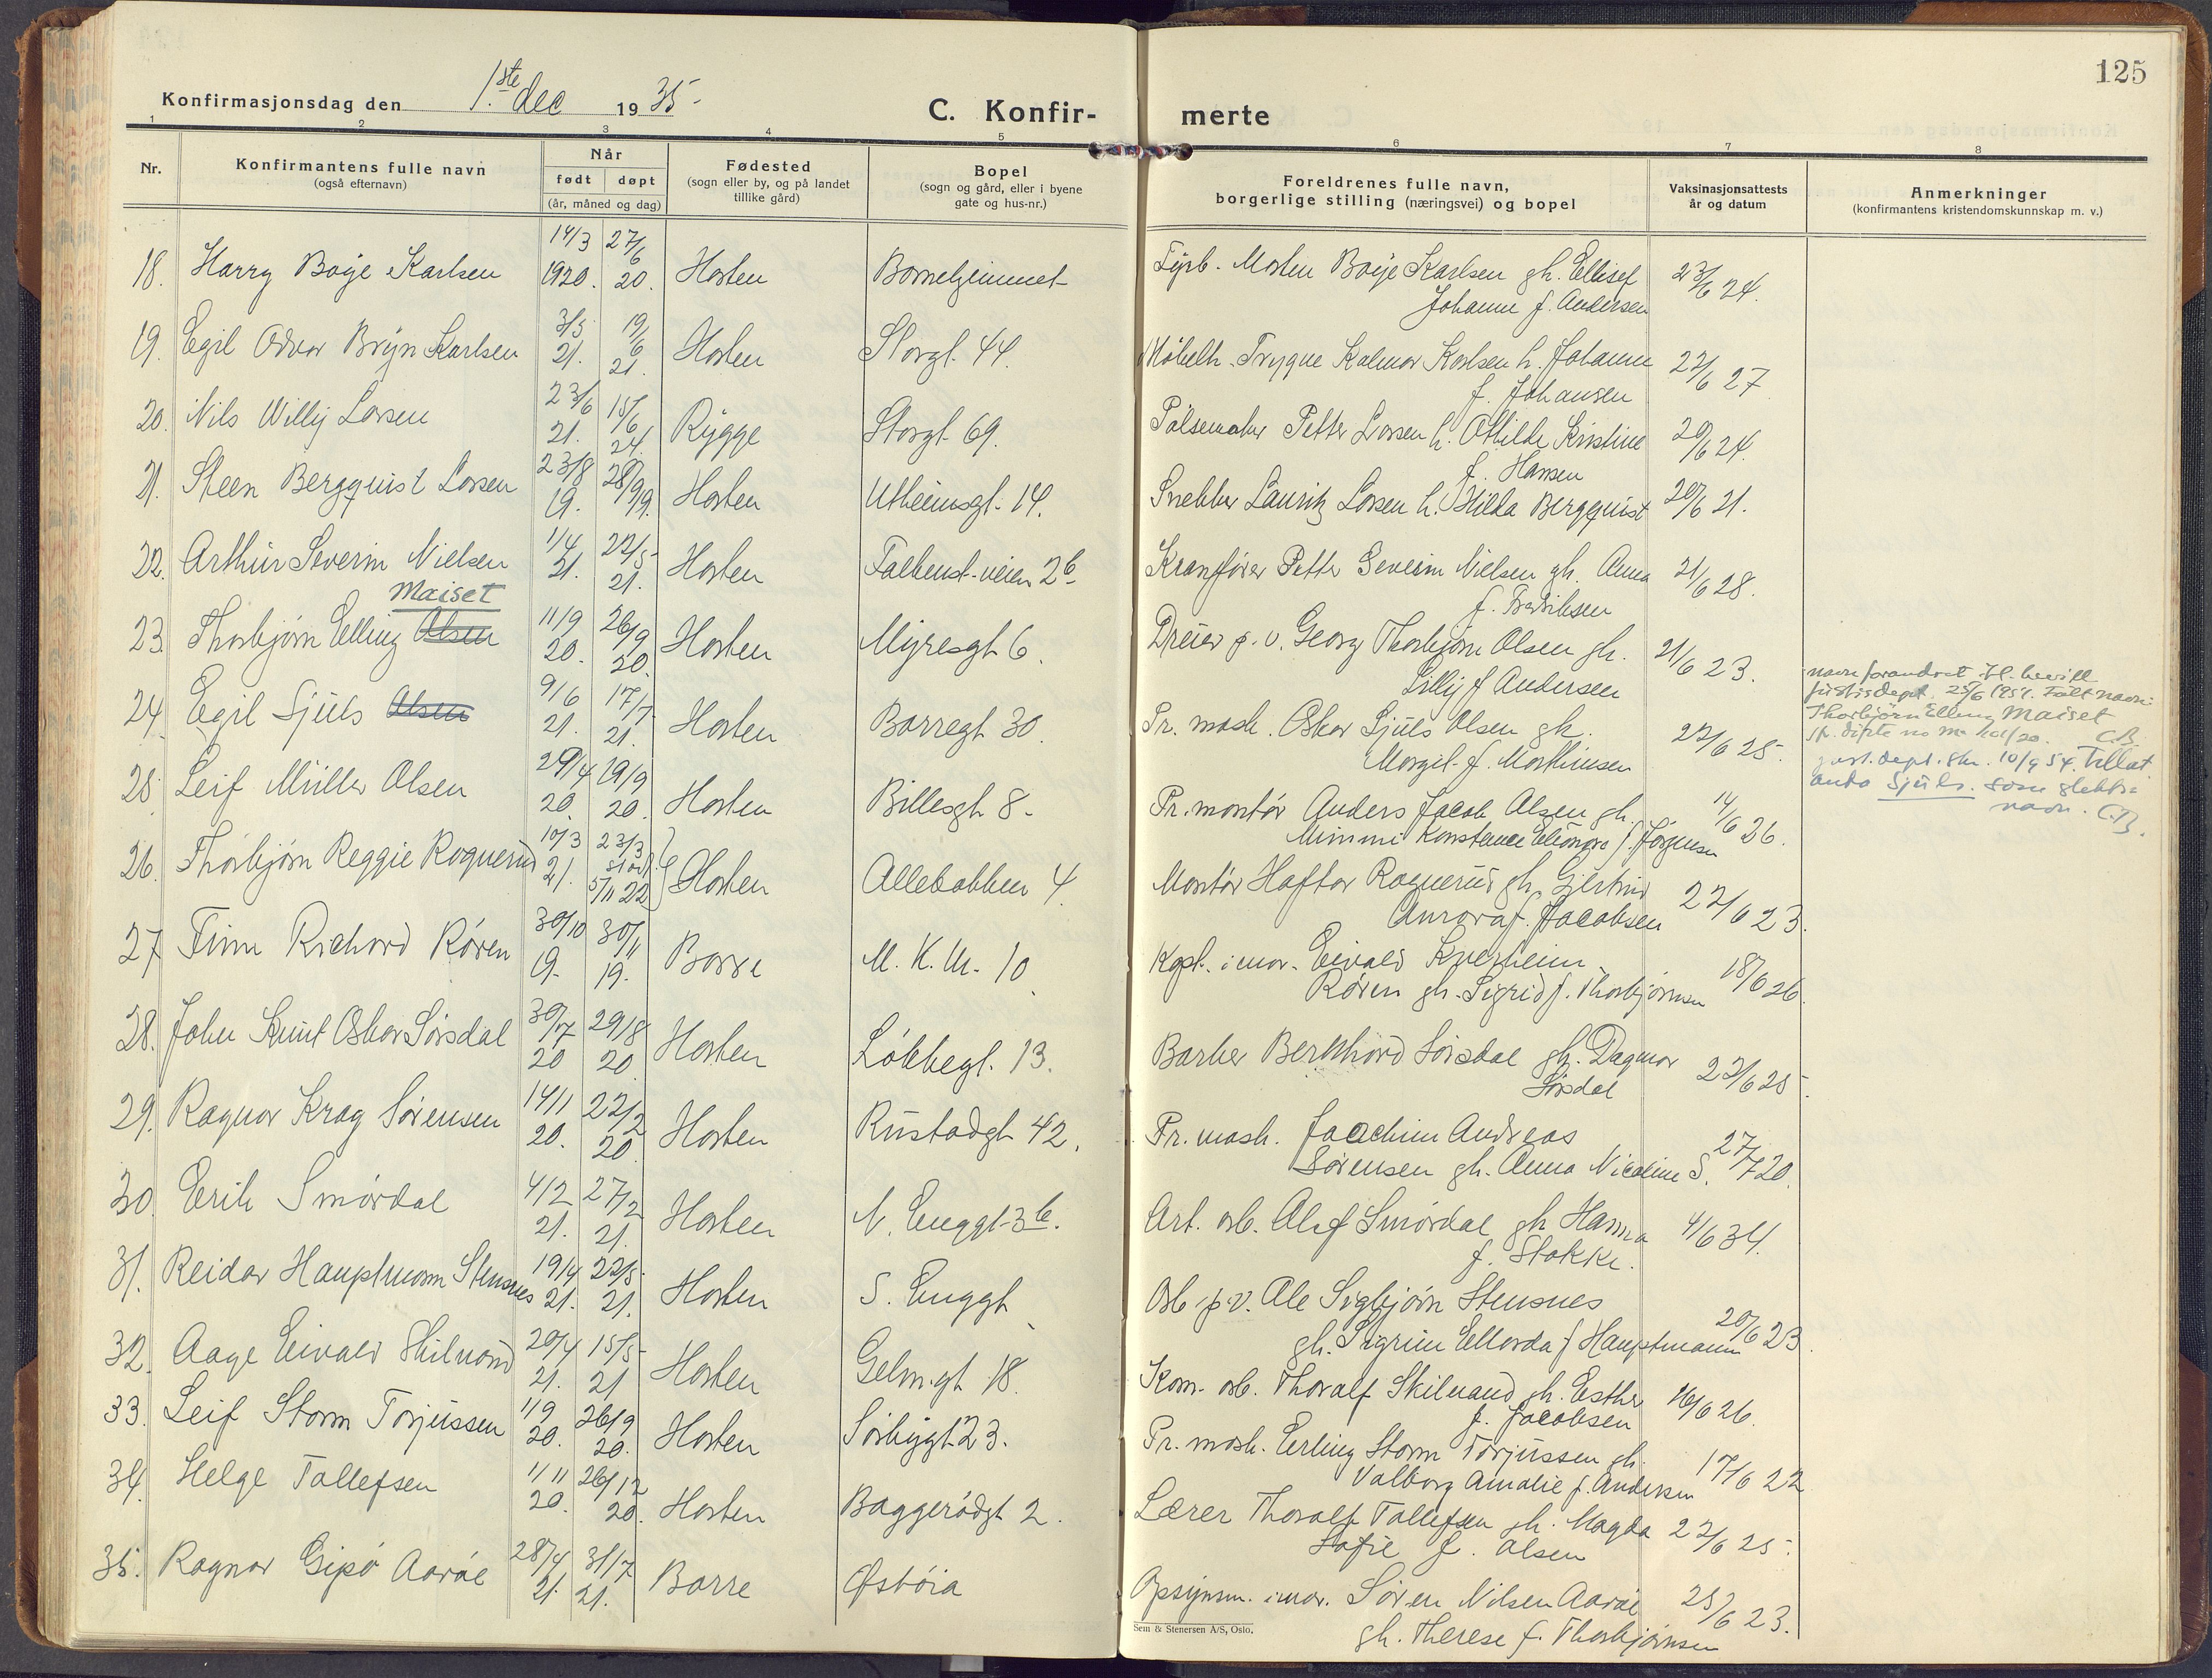 125
Konfirmasjonsdag den 1.ste dec 1935-
C. Konfir- merte
1 2 3 4 5 6 7 8
Nr.
Konfirmantens fulle navn
(også efternavn)
Når
født døpt
(år, måned og dag)
Fødested
(sogn eller by, og på landet
tillike gård)
Bopel
(sogn og gård, eller i byene
gate og hus-nr.)
Foreldrenes fulle navn,
borgerlige stilling (næringsvei) og bopel
Vaksinasjonsattests
år og datum
Anmerkninger
(konfirmantens kristendomskunnskap m. v.)
18. Harry Boije Karlsen 14/3 1920. 27/6 20. Horten Barnehjemmet Morten Boije Karlsen gh. Ellisef 23/6 24.
Johanne f. Andersen
19. Egil Odvar Bryn Karlsen 3/5 21. 19/6 21. Horten Storgt. 44. Møbelh. Trygve Kalmar Karlsen h. Johanne 22/6 27
f. Johansen
20. Nils Willy Larsen 23/6 21. 15/6 24. Rygge Storgt. 69. Pølsemaker Petter Larsen h. Othilde Kristine 20/6 24.
f. Hansen
21. Steen Bergquist Larsen 23/8 19. 28/9 19. Horten Utheimsgt. 14. Snekker Lauritz Larsen h. Hilda Bergquist 20/6 21.
22. Arthur Severin Nielsen 1/4 21. 22/5 21. Horten Falkenst. veien 26 Kranfører Petter Severin Nielsen gh. Anna 21/6 28.
f. Fredriksen
Maiset
23. Thorbjørn Elling Olsen 11/9 20. 26/9 20. Horten Myresgt 6. Dreier p. v. Georg Thorbjørn Olsen gh. 21/6 23.
Lilly f Andersen
navn forandret fl. bevill
justisdept. 25/6 1951. Fullt navn:
Thorbjørn Elling Maiset
C.B.
24. Egil Sjuls Olsen 9/6 21. 17/7 21. Horten Borregt 30. Pr. mask. Oskar Sjuls Olsen gh. 22/6 25.
Margit f. Marthinsen
just. dept. skr. 10/9 54. Tillat
Sjuls. som slekts=
navn. C.B.
25. Leif Müller Olsen 29/4 20. 19/9 20. Horten Billesgt 8. Pr. montør Anders Jacob Olsen gh. 14/6 26.
Mimmi Konstance Eleonora f. Jørgensen
26. Thorbjørn Reggie Rognerud 10/3 21. 23/3 5/11 22 Horten Allebakken 4. Montør Haftor Rognerud gh. Gjertrud 22/6 23.
Aurora f. Jacobsen
27 Finn Richard Røren 30/10 19. 30/11 19. Borre M. K. M. 10. Kapt. i mar. Eivald Kverheim 18/6 26.
Røren gh. Sigrid f. Thorbjørnsen
28. John Knut Oskar Sørsdal 30/7 20 29/8 20. Horten Løkkegt. 13. Barber Bernhard Sørsdal gh. Dagmar 22/6 25.
Sørsdal
29. Ragnar Krag Sørensen 14/1 20. 22/2 20. Horten Rustadgt 42. Pr. mask. Joachim Andreas
Sørensen gh. Anna Nicoline S. 27/7 20.
30. Erik Smørdal 4/2 21. 27/2 21. Horten N. Enggt 36. Art. arb. Olaf Smørdal gh Hanna 4/6 34.
f. Stokke.
31. Reidar Hauptmann Stensnes 19/4 21. 22/5 21. Horten S. Enggt Arb. p. v. Ole Sigbjørn Stensnes 20/6 23.
gh. Sigrun Ellorda f Hauptmann
32. Aage Eivald Skilnand 20/4 21. 15/5 21 Horten Gelm.gt 18. Kom. arb. Thoralf Skilnand gh. Esther 16/6 26.
f. Jacobsen
33. Leif Storm Torjussen 1/9 20. 26/9 20. Horten Sørbygt 23. Pr. mask. Erling Storm Torjussen gh. 17/6 22
Valborg Amalie f. Andersen
34. Helge Tollefsen 1/11 20. 26/12 20. Horten Baggerødgt 2. Lærer Thoralf Tollefsen gh. Magda 22/6 25.
Sofie f. Olsen
35. Ragnar Gipø Aarøe 28/4 21. 31/7 21. Borre Østøia Opsynsm. i mar. Søren Nilsen Aarøe 25/6 23.
gh. Therese f. Thorbjørnsen
Sem & Stenersen A/S, Oslo.